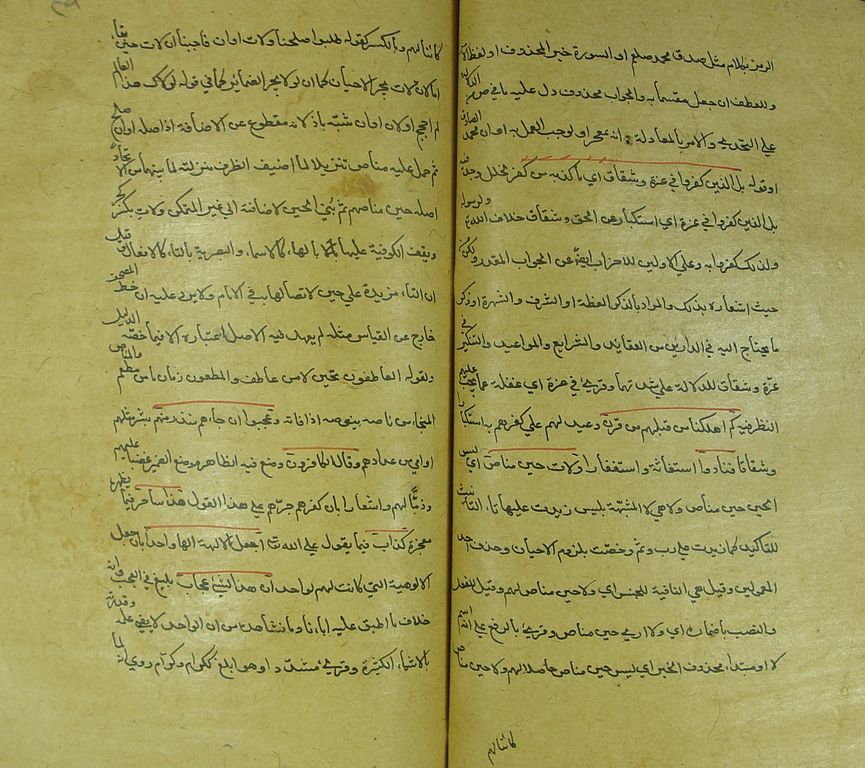 الرمز بكلام مثل صدق محمد صلعم او السورة خبر المحذوف او لفظ الامر
وللعطف ان جعل مقسما به والجواب محذوف دل عليه ما في ص من الدلالة
علي التحدي والامر بالمعادلة انه لمعجز او لوجب العمل به او ان محمد الصادق
او قوله بل الذين كفروا في عزة وشقاق اي ما كفر به من كفر لخلل وجده فيه
بل الذين كفروا في عزة اي استكبار عن الحق وشقاق خلاف الله ولرسوله
ولذلك كفروا به وعلي الاولين للاضراب ايضا عن الجواب المقدر ولكن من
حيث اشعاره بذلك والمراد بالذكر العظة او الشرف والشهرة او ذكر
ما يحتاج اليه في الدين من العقايد والشرايع والمواعيد والتنكير في
عزة وشقاق للدلالة علي شدتهما وقرئ في غرة اي غفلة عما يجب عليهم
النظر فيه كم اهلكنا من قبلهم من قرن وعيد لهم علي كفرهم به استكبارا
وشقاقا فنادوا استغاثة واستغفارا ولات حين مناص اي ليس
الحين حين مناص ولا هي لا المشبهة بليس زيدت عليها تا، التانيث
للتاكيد كما زيدت علي رب وثم وخصت بلزوم الاحيان وحذف احد
المعمولين وقيل هي النافية للجنس اي ولا حين مناص لهم وقيل للفعل
والنصب باضماره اي ولا اري حين مناص وقرئ بالرفع علي انه اسم
لا او مبتدأ محذوف الخبر اي ليس حين مناص حاصلا لهم ولا حين مناص
كائنا لهم
كائنا لهم وبالكسر كقوله طلبوا صلحنا ولات اوان فاجبنا ان لات حين بقاء
اما لان لات تجر الاحيان كما ان لولا تجر الضمائر كما في قوله لولاك هذا العام
لم احجج او لان اوان شبه باذ لانه مقطوع عن الاضافة اذ اصله اوان صلح
ثم حمل عليه مناص تنزيلا لما اضيف الظرف منزلته لما بينهما من الاتحاد
اصله حين مناصهم ثم بني الحين لاضافته الي غير المتمكن ولات بالكسر كجير
ويقف الكوفية عليها بالها، كالاسما، والبصرية بالتا، كالافعال وقيل
ان التا، مزيدة علي حين لاتصالها به في الامام ولا يرد عليه ان خط المصحف
خارج عن القياس مثله لم يعهد فيه الاصل اعتباره الا فيما خصه الدليل
ولقوله العاطفون تحين لا من عاطف والمطعمون زمان ما من مطعم والمناص
المنجا، من ناصه ينوصه اذا فاته وعجبوا ان جاءهم منذر منهم بشر مثلهم
او امي من عدادهم وقال الكافرون وضع فيه الظاهر موضع الضمير غضبا عليهم
وذما لهم واشعارا بان كفرهم جرهم علي هذا القول هذا ساحر فيما يظهره
معجزة كذاب فيما يقول علي الله تعا اجعل الآلهة الها واحدا بان جعل
الالوهية التي كانت لهم لواحد ان هذا لشئ عجاب بليغ في العجب وانه
خلاف ما اطبق عليه ابا، نا وما نشاهده من ان الواحد لا يفي علمه وقدرته
بالاشيا، الكثيرة وقرئ مشددا وهو ابلغ ككرام وكرام روي انه لما